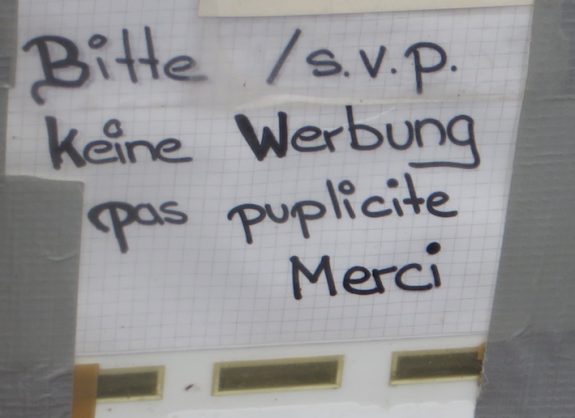 Bitte / s.v.p.
Keine Werbung
pas puplicite
Merci